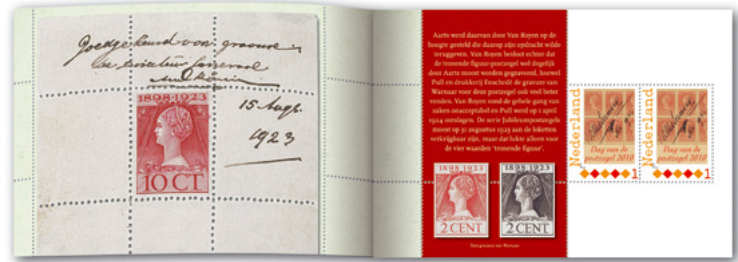 Goedgekeurd voor gravure
de directeur
15 Aug.
1923
1898-1923
10 CT
Aarts werd daarvan door Van Royen op de
hoogte gesteld die daarop zijn opdracht wilde
teruggeven. Van Royen besloot echter dat
de tronende figuur-postzegel wel degelijk
door Aarts moest worden gegraveerd, hoewel
Pull en drukkerij Enschedé de gravure van
Warnaar voor deze postzegel ook veel beter
vonden. Van Royen vond de gehele gang van
zaken onacceptabel en Pull werd op 1 april
1924 ontslagen. De serie Jubileumpostzegels
moest op 31 augustus 1923 aan de loketten
verkrijgbaar zijn, maar dat lukte alleen voor
de vier waarden 'tronende figuur'.
1898-1923
2 CENT
1898-1923
2 CENT
Nederland
Dag van de
postzegel 2010
1
Nederland
Dag van de
postzegel 2010
1